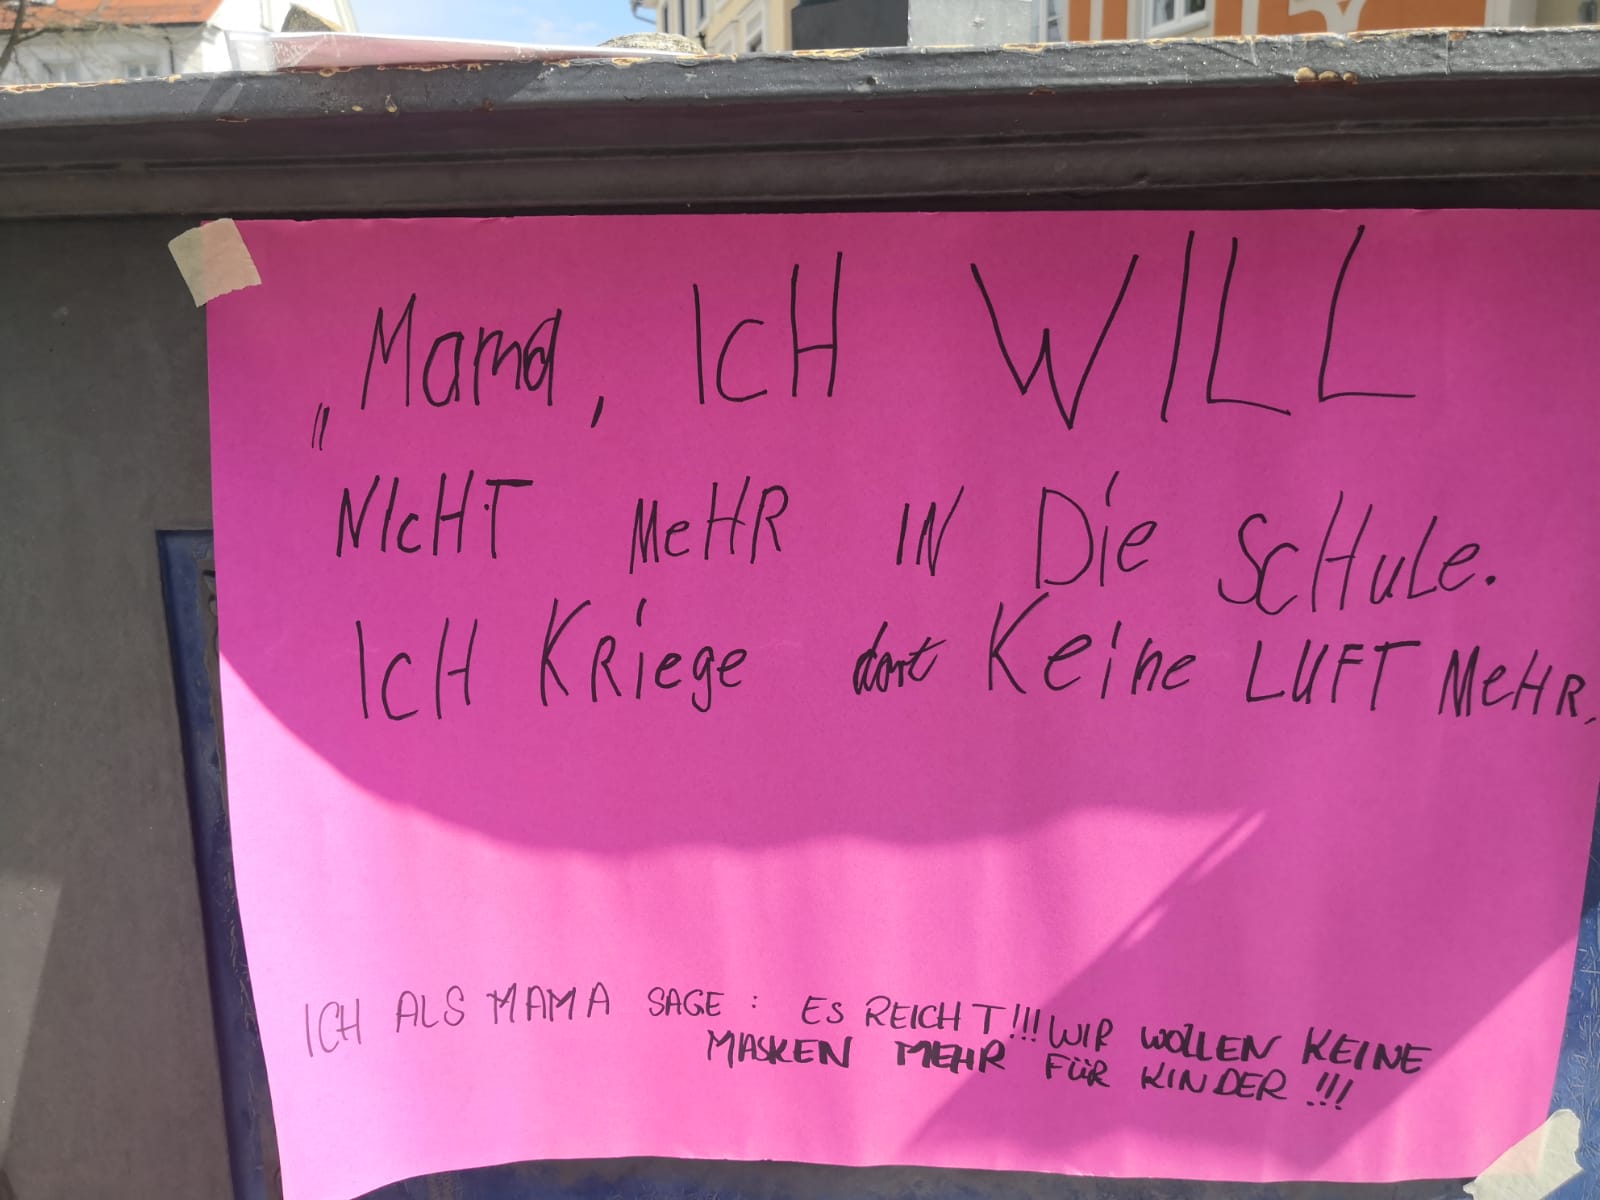 „Mama, ICH WILL
NICHT MeHR IN Die SCHuLe.
ICH KRiege dort Keine LUFT MeHR.
ICH ALS MAMA SAGE : ES REICHT!!! WIR WOLLEN KEINE
MASKEN MEHR FÜR KINDER !!!